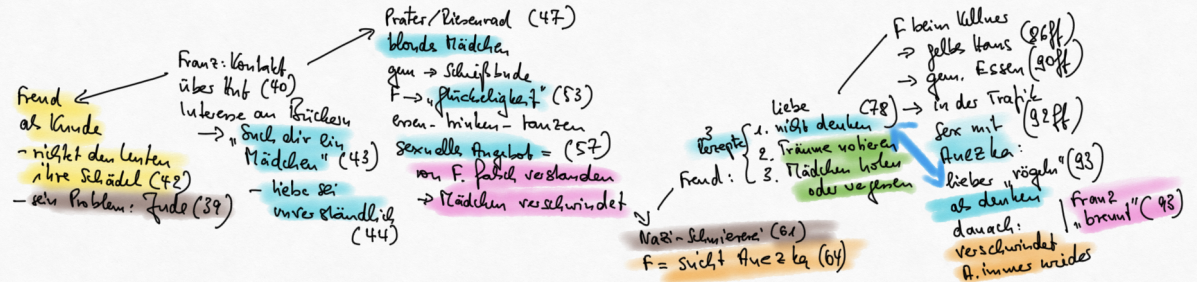 Freud
als Kunde
- richtet den Leuten
ihre Schädel (42)
- sein Problem: Jude (39)
Franz: Kontakt
über Hut (40)
Interesse an Büchern
→ "Such dir ein
Mädchen" (43)
- Liebe sei
unverständlich
(44)
Prater/Riesenrad (47)
blondes Mädchen
gem → Schießbude
F → "glückseligkeit" (53)
essen - trinken - tanzen
sexuelles Angebot = (57)
von F. falsch verstanden
→ Mädchen verschwindet
Nazi-Schmiererei (61)
F = sucht Anezka (64)
Freud:
3
Rezepte
Liebe (78)
1. nicht denken
2. Träume notieren
3. Mädchen holen
oder vergessen
F beim Kellner
→ gelbes Haus (86ff)
→ gem. Essen (90ff)
→ in der Trafik
(92ff)
Sex mit
Anezka:
"lieber vögeln" (93)
als denken
danach:
verschwindet
A. immer wieder
"Franz
brennt" (93)